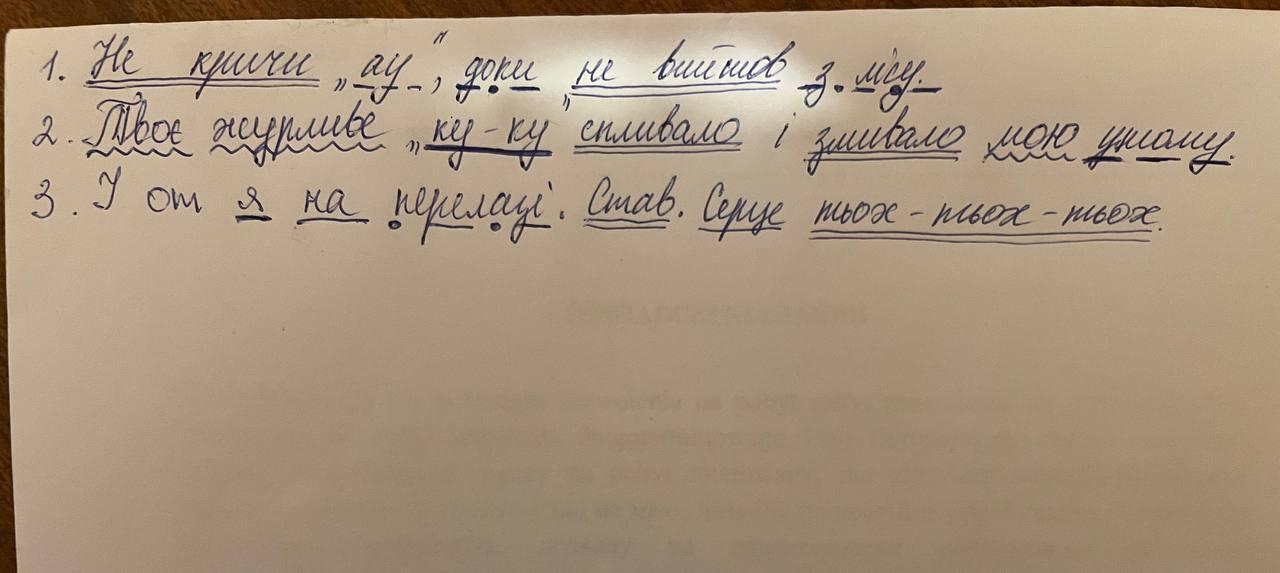 1. Не кричи „ау“, доки не вийшов з лісу.
2. Твоє журливе „ку-ку“ спливало і змивало мою утому.
3. І от я на перелазі. Став. Серце тьох-тьох-тьох.